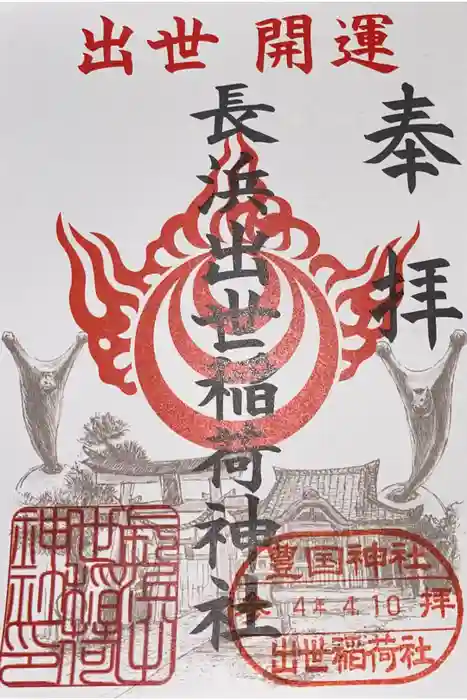 出世 開運
奉拝
長浜出世稲荷神社
長浜出世稲荷神社印
豊国神社
4年 4.10 拝
出世稲荷社